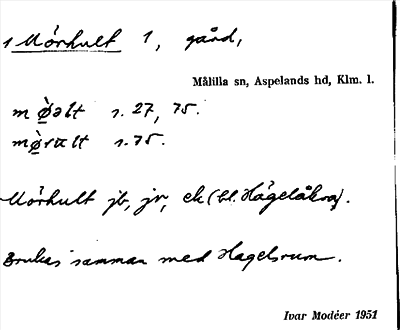 1 Mörhult 1, gård,
Målilla sn, Aspelands hd, Klm. l.
s. 27, 75.
s. 75.
Mörhult jb, jr, ek (bl. Hagelåkra).
Brukas samman med Hagelsrum.
Ivar Modéer 1951